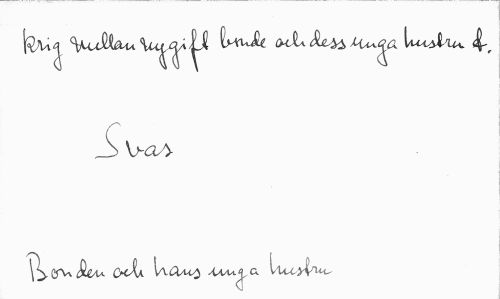 krig mellan nygift bonde och dess unga hustru d.
Svas
Bonden och hans unga hustru